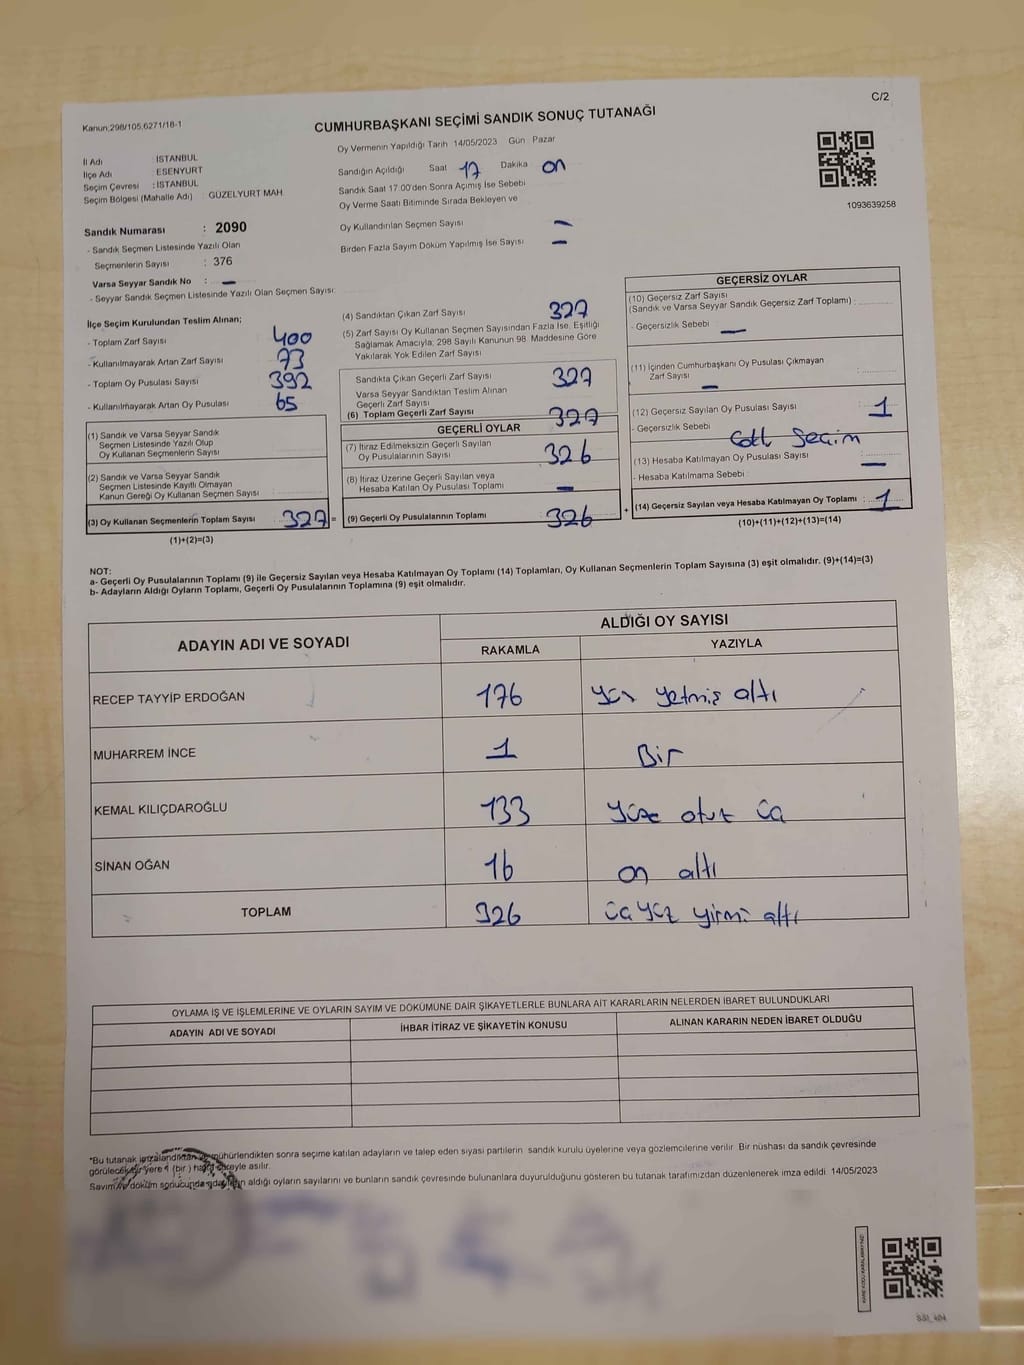 C/2
Kanun:298/105,6271/18-1
CUMHURBAŞKANI SEÇİMİ SANDIK SONUÇ TUTANAĞI
Oy Vermenin Yapıldığı Tarih 14/05/2023 Gün Pazar
İl Adı : İSTANBUL
İlçe Adı : ESENYURT
Seçim Çevresi : İSTANBUL
Seçim Bölgesi (Mahalle Adı) : GÜZELYURT MAH
Sandığın Açıldığı Saat 17 Dakika on
Sandık Saat 17.00'den Sonra Açımış İse Sebebi
Oy Verme Saati Bitiminde Sırada Bekleyen ve
Oy Kullandırılan Seçmen Sayısı –
Birden Fazla Sayım Döküm Yapılmış İse Sayısı –
1093639258
Sandık Numarası : 2090
- Sandık Seçmen Listesinde Yazılı Olan
Seçmenlerin Sayısı : 376
Varsa Seyyar Sandık No : –
- Seyyar Sandık Seçmen Listesinde Yazılı Olan Seçmen Sayısı:
İlçe Seçim Kurulundan Teslim Alınan;
- Toplam Zarf Sayısı : 400
- Kullanılmayarak Artan Zarf Sayısı : 73
- Toplam Oy Pusulası Sayısı : 392
- Kullanılmayarak Artan Oy Pusulası : 65
(1) Sandık ve Varsa Seyyar Sandık
Seçmen Listesinde Yazılı Olup
Oy Kullanan Seçmenlerin Sayısı :
(2) Sandık ve Varsa Seyyar Sandık
Seçmen Listesinde Kayıtlı Olmayan
Kanun Gereği Oy Kullanan Seçmen Sayısı :
(3) Oy Kullanan Seçmenlerin Toplam Sayısı : 327 =
(1)+(2)=(3)
(4) Sandıktan Çıkan Zarf Sayısı 327
(5) Zarf Sayısı Oy Kullanan Seçmen Sayısından Fazla İse, Eşitliği
Sağlamak Amacıyla, 298 Sayılı Kanunun 98. Maddesine Göre
Yakılarak Yok Edilen Zarf Sayısı
Sandıkta Çıkan Geçerli Zarf Sayısı 327
Varsa Seyyar Sandıktan Teslim Alınan
Geçerli Zarf Sayısı
(6) Toplam Geçerli Zarf Sayısı 327
GEÇERLİ OYLAR
(7) İtiraz Edilmeksizin Geçerli Sayılan
Oy Pusulalarının Sayısı 326
(8) İtiraz Üzerine Geçerli Sayılan veya
Hesaba Katılan Oy Pusulası Toplamı –
(9) Geçerli Oy Pusulalarının Toplamı 326 +
GEÇERSİZ OYLAR
(10) Geçersiz Zarf Sayısı
(Sandık ve Varsa Seyyar Sandık Geçersiz Zarf Toplamı) :
- Geçersizlik Sebebi –
(11) İçinden Cumhurbaşkanı Oy Pusulası Çıkmayan
Zarf Sayısı – :
(12) Geçersiz Sayılan Oy Pusulası Sayısı : 1
- Geçersizlik Sebebi Seçim
(13) Hesaba Katılmayan Oy Pusulası Sayısı : –
- Hesaba Katılmama Sebebi :
(14) Geçersiz Sayılan veya Hesaba Katılmayan Oy Toplamı : 1
(10)+(11)+(12)+(13)=(14)
NOT:
a- Geçerli Oy Pusulalarının Toplamı (9) ile Geçersiz Sayılan veya Hesaba Katılmayan Oy Toplamı (14) Toplamları, Oy Kullanan Seçmenlerin Toplam Sayısına (3) eşit olmalıdır. (9)+(14)=(3)
b- Adayların Aldığı Oyların Toplamı, Geçerli Oy Pusulalarının Toplamına (9) eşit olmalıdır.
ADAYIN ADI VE SOYADI ALDIĞI OY SAYISI
RAKAMLA YAZIYLA
RECEP TAYYİP ERDOĞAN 176 yüz yetmiş altı
MUHARREM İNCE 1 Bir
KEMAL KILIÇDAROĞLU 133 yüz otuz üç
SİNAN OĞAN 16 on altı
TOPLAM 326 üç yüz yirmi altı
OYLAMA İŞ VE İŞLEMLERİNE VE OYLARIN SAYIM VE DÖKÜMÜNE DAİR ŞİKAYETLERLE BUNLARA AİT KARARLARIN NELERDEN İBARET BULUNDUKLARI
ADAYIN ADI VE SOYADI İHBAR İTİRAZ VE ŞİKAYETİN KONUSU ALINAN KARARIN NEDEN İBARET OLDUĞU
*Bu tutanak imzalandıktan ve mühürlendikten sonra seçime katılan adayların ve talep eden siyasi partilerin sandık kurulu üyelerine veya gözlemcilerine verilir. Bir nüshası da sandık çevresinde
görülecek bir yere 1 (bir) hafta süreyle asılır.
Sayım ve döküm sonucunda adayların aldığı oyların sayılarını ve bunların sandık çevresinde bulunanlara duyurulduğunu gösteren bu tutanak tarafımızdan düzenlenerek imza edildi. 14/05/2023
KARE KODU KARALAMAYINIZ!